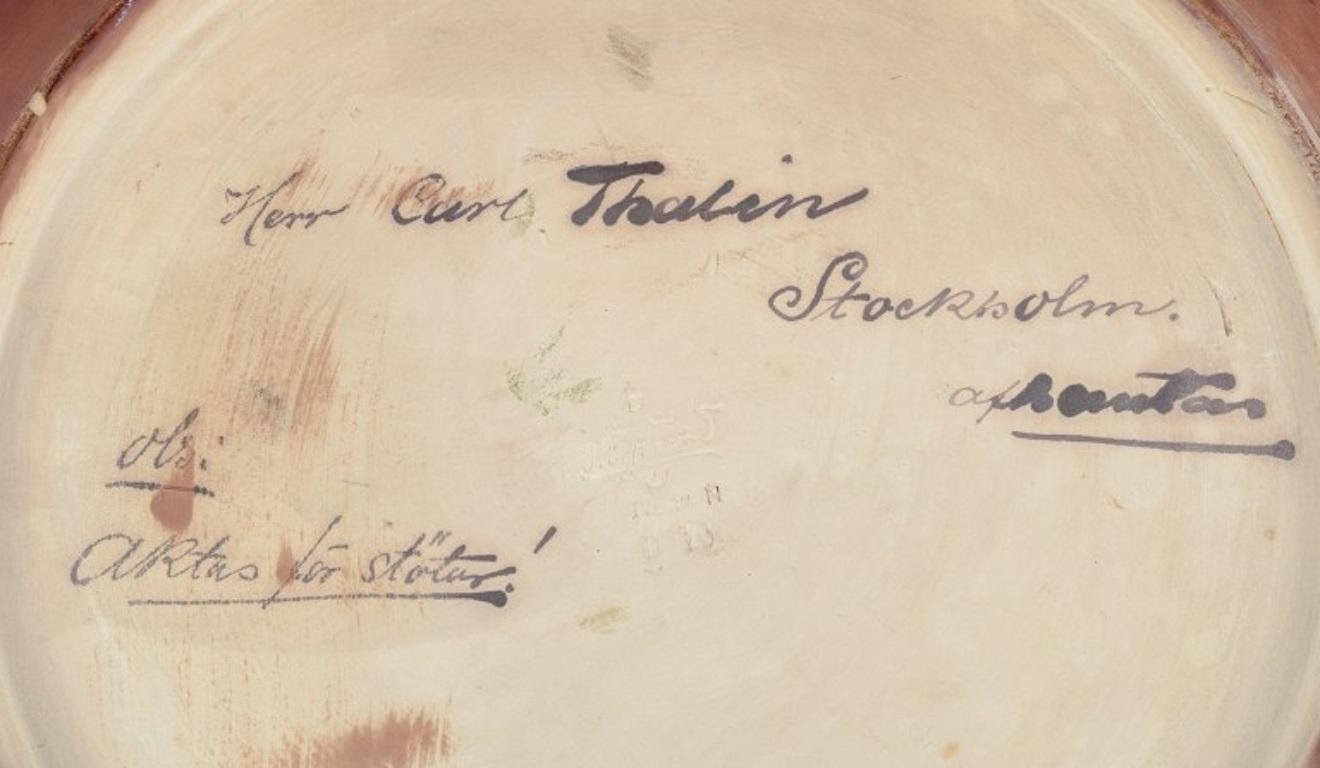 Herr Carl Thalin
Stockholm.
afhemtas
obs:
Aktas för stötar!